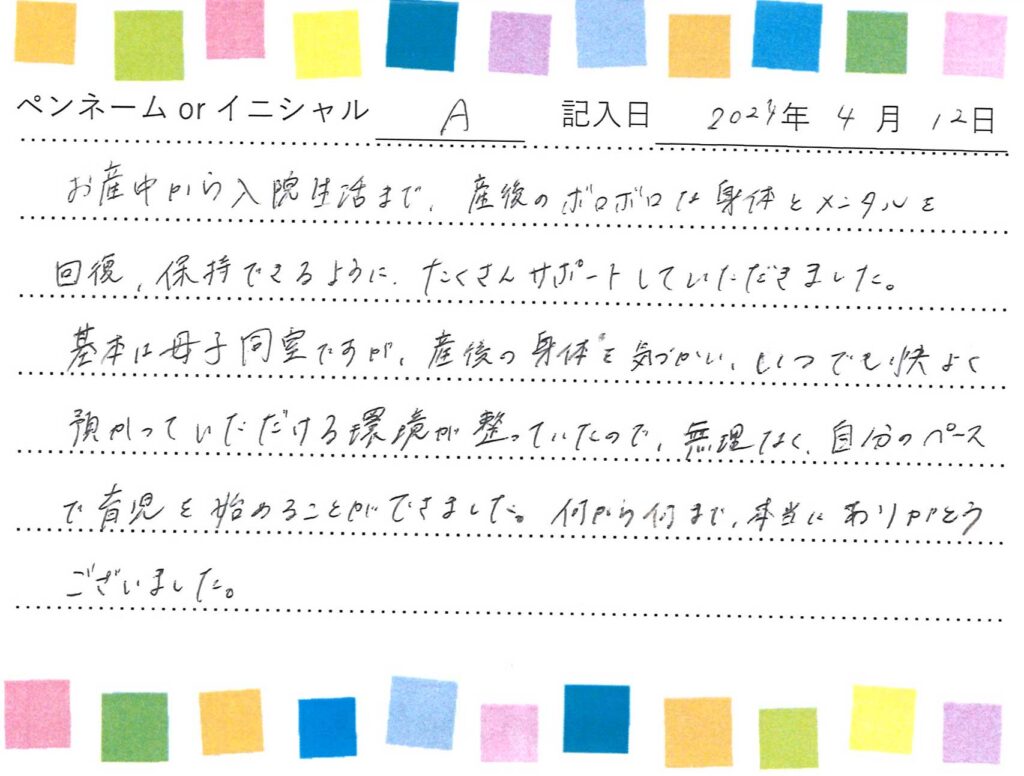 ペンネーム or イニシャル A 記入日 2024年 4月 12日
お産中から入院生活まで、産後のボロボロな身体とメンタルを
回復、保持できるように、たくさんサポートしていただきました。
基本は母子同室ですが、産後の身体を気づかい、いつでも快よく
預かっていただける環境が整っていたので、無理なく、自分のペース
で育児を始めることができました。何から何まで、本当にありがとう
ございました。